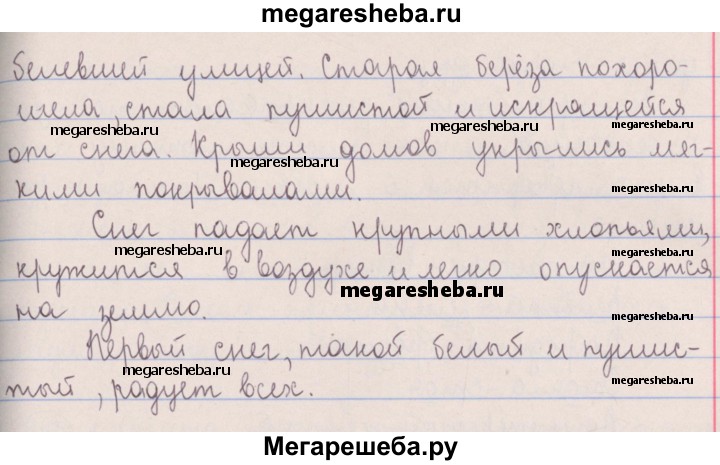 megaresheba.ru
белевшей улицей. Старая берёза похоро-
шела, стала пушистой и искращейся
megaresheba.ru megaresheba.ru megaresheba.ru
от снега. Крыши домов укрылись мяг-
megaresheba.ru
кими покрывалами.
megaresheba.ru
Снег падает крупными хлопьями,
megaresheba.ru megaresheba.ru
кружится в воздухе и легко опускается
megaresheba.ru
на землю.
megaresheba.ru
Первый снег, такой белый и пушис-
megaresheba.ru megaresheba.ru
тый, радует всех.
Мегарешеба.ру